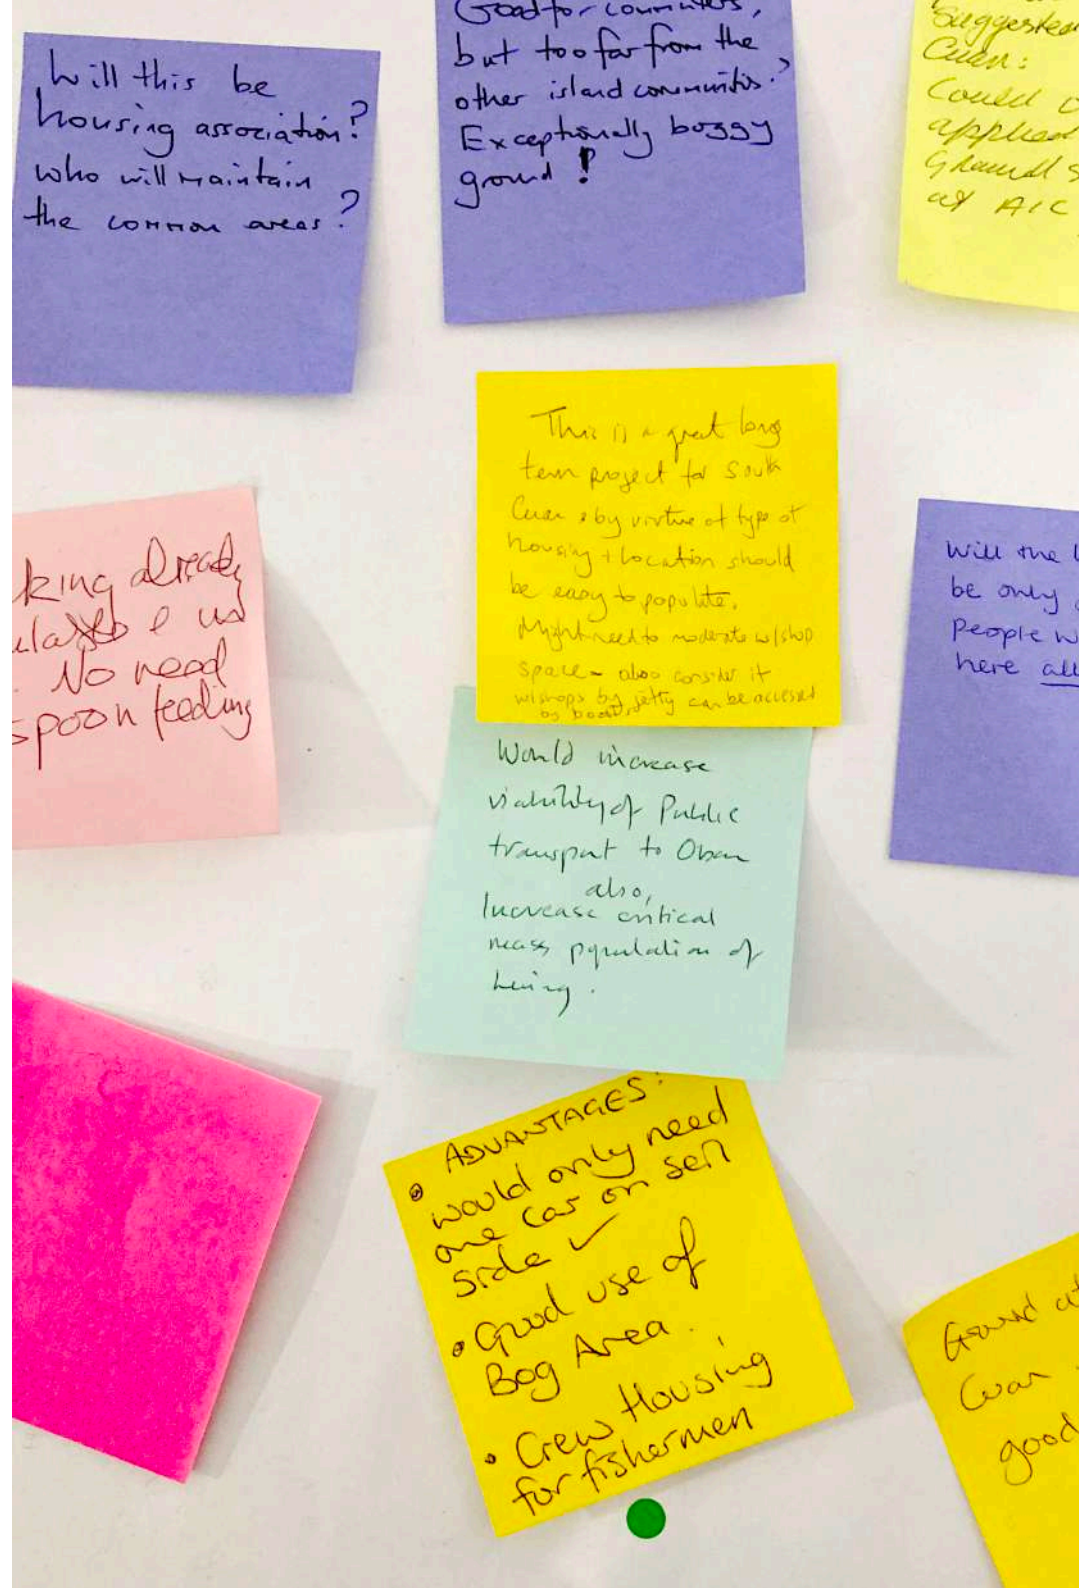 Will this be
housing association?
who will maintain
the common areas?
Good for commuters,
but too far from the
other island communitis?
Exceptionally boggy
ground!
Suggested
Cuan:
Could
applied
Ground S
at AIC
This is a great long
term project for South
Cuan & by virtue of type of
housing + location should
be easy to populate.
Might need to moderate w/shop
space - also consider if
w/shops by jetty can be accessed
by boat.
king already
No need
spoon feeding
Will the
be only
People w
here all
Would increase
viability of Public
transport to Oban
also,
Increase critical
mass population of
being.
ADVANTAGES:
• would only need
one car on seil
side ✓
• Good use of
Bog Area.
• Crew Housing
for fishermen
Ground at
Cuan
good